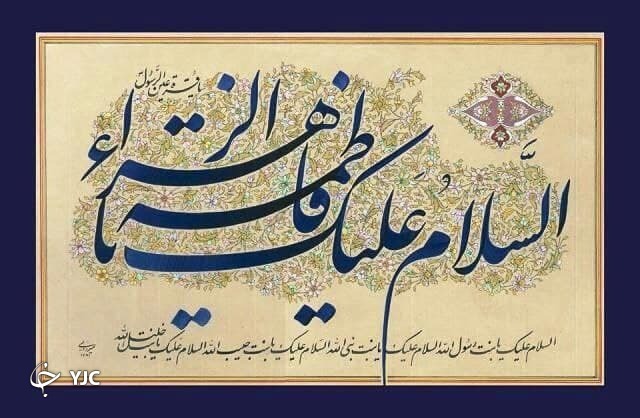 یا قرة عین الرسول
السَّلامُ عَلیکَ یا فاطمه الزهراء
السلام علیک یا بنت رسول الله السلام علیک یا بنت نبی الله السلام علیک یا بنت حبیب الله السلام علیک یا بنت خلیل الله
YJC